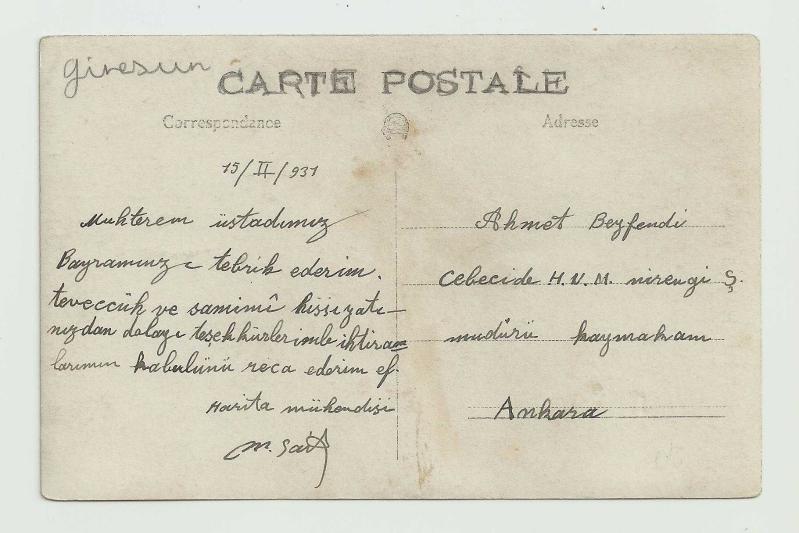 giresun
CARTE POSTALE
Correspondance
Adresse
15/II/931
Muhterem üstadımız
Bayramınızı tebrik ederim.
teveccüh ve samimî hissiyatı-
nızdan dolayı teşekkürlerimle ihtiram
larımın kabulünü reca ederim ef.
Harita mühendisi
M. Sait
Ahmet Beyfendi
Cebecide H. U. M. nirengi Ş.
mudürü kaymakam
Ankara